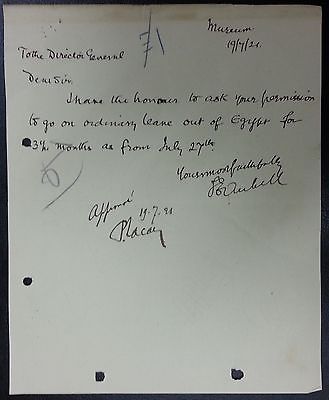 Museum
19/7/21.
To the Director General
Dear Sir,
I have the honour to ask your permission
to go on ordinary leave out of Egypt for
3½ months as from July 27th.
Yours most faithfully
Quibell
Approuvé
19-7-21
P. Lacau